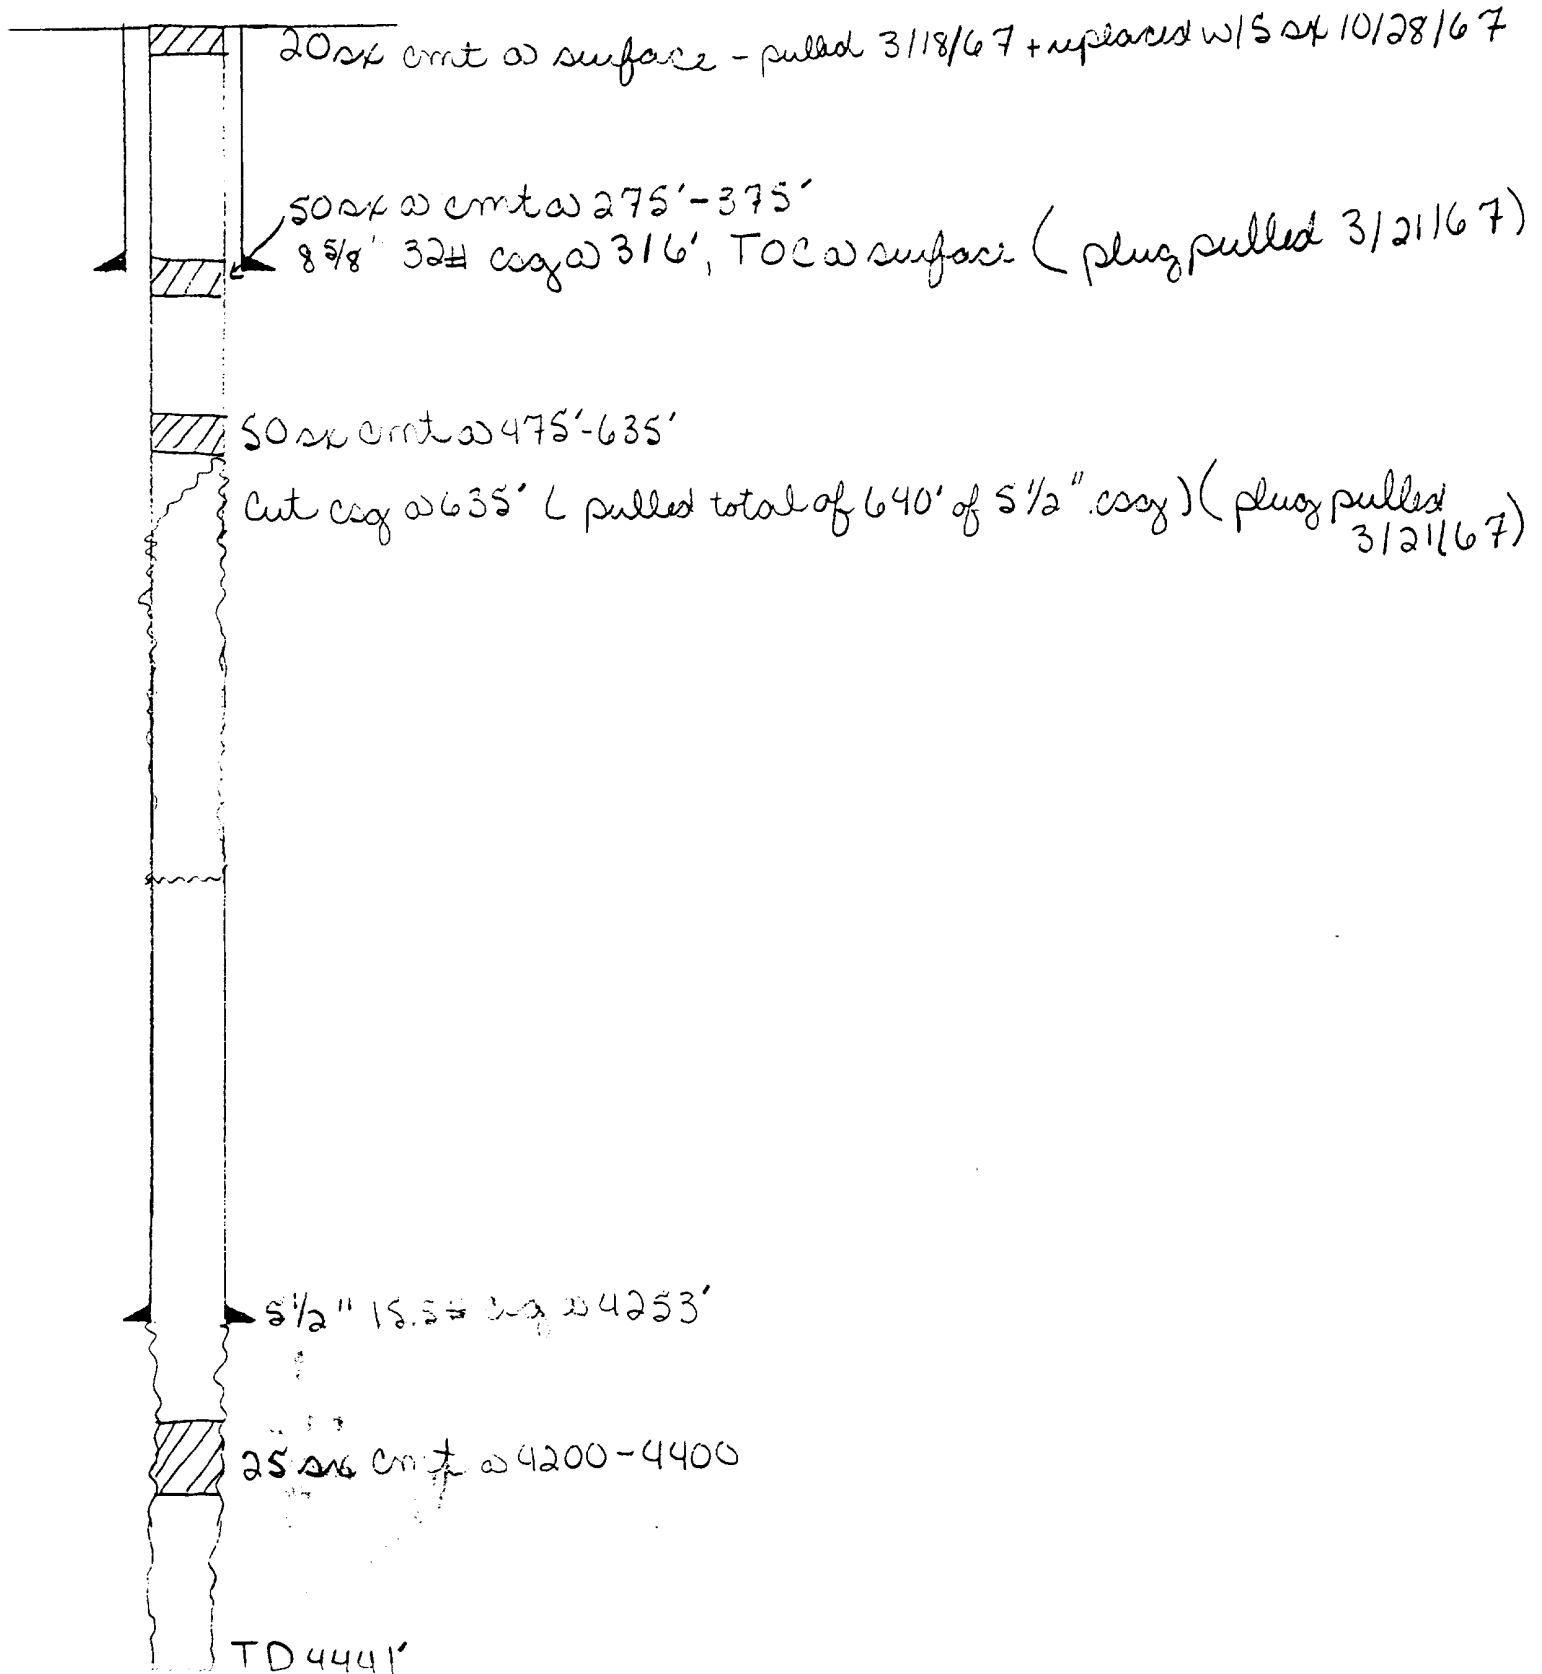 20 sx cmt @ surface - pulled 3/18/67 + replaced w/5 sx 10/28/67
50 sx @ cmt @ 275'-375'
8 5/8" 32# csg @ 316', TOC @ surface ( plug pulled 3/21/67)
50 sx cmt @ 475'-635'
Cut csg @ 635' ( pulled total of 640' of 5 1/2" csg ) ( plug pulled
3/21/67)
5 1/2" 15.5# csg @ 4253'
25 sx cmt @ 4200-4400
TD 4441'